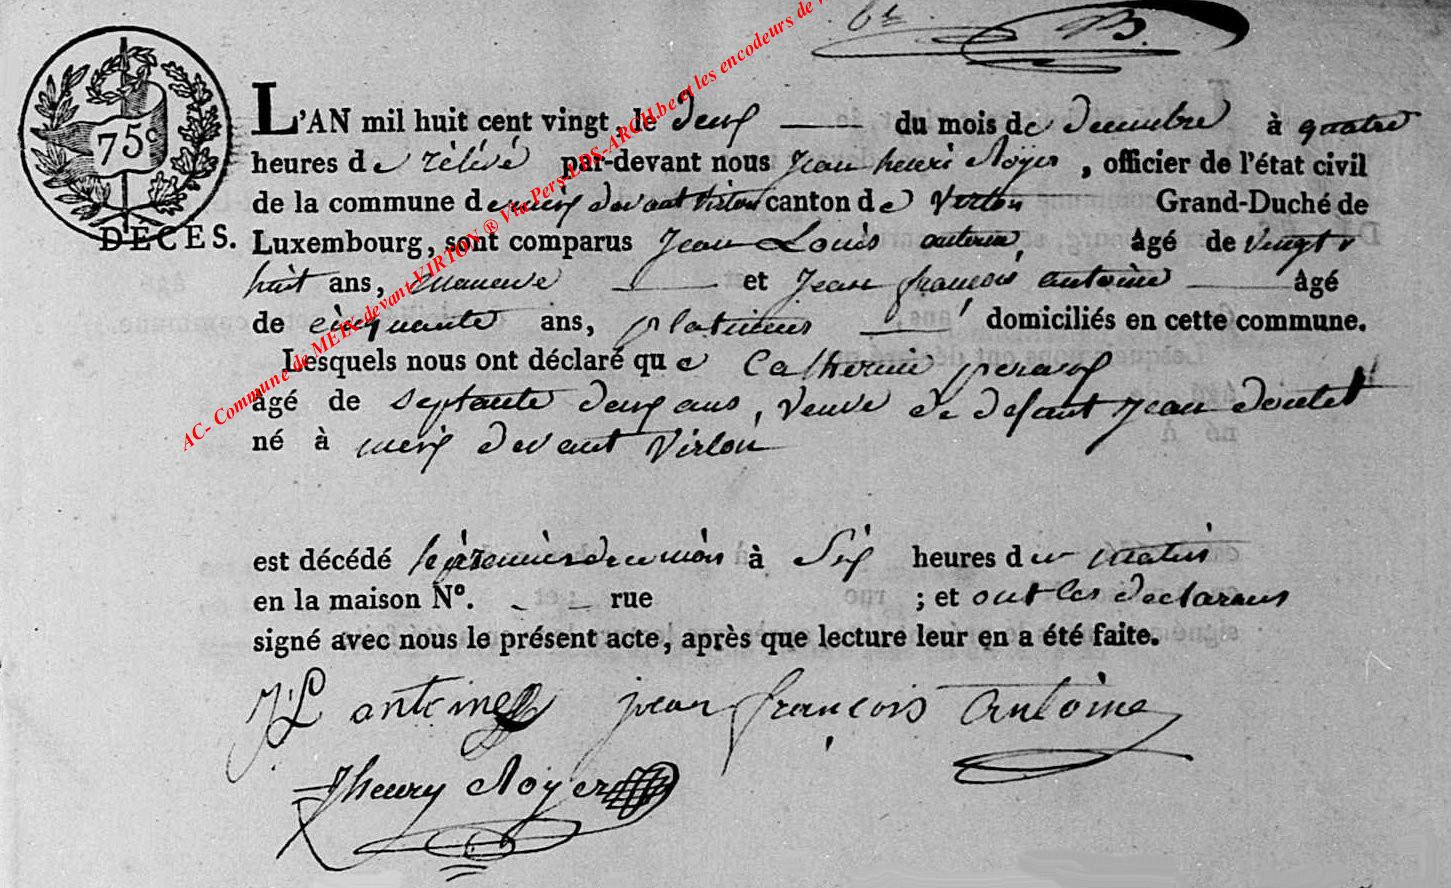 B.
75c
DÉCÈS.
AC- Commune de METX-devant-VIRTON ® Via Pers LDS-ARCH.be et les encodeurs de
L'AN mil huit cent vingt, le deux du mois de decembre à quatre
heures de rélévé par-devant nous Jean henri Noÿer, officier de l'état civil
de la commune de meix devant virton canton de Virton Grand-Duché de
Luxembourg, sont comparus Jean Louis antoine âgé de vingt
huit ans, manœuvre et Jean françois antoine âgé
de cinquante ans, domiciliés en cette commune.
Lesquels nous ont déclaré que Catherine
âgé de septante deux ans, veuve de defunt Jean
né à meix devant Virton
est décédé le premier de ce mois à Six heures du matin
en la maison No. rue ; et ont les declarans
signé avec nous le présent acte, après que lecture leur en a été faite.
JL antoine jean françois antoine
Jhenry Noÿer